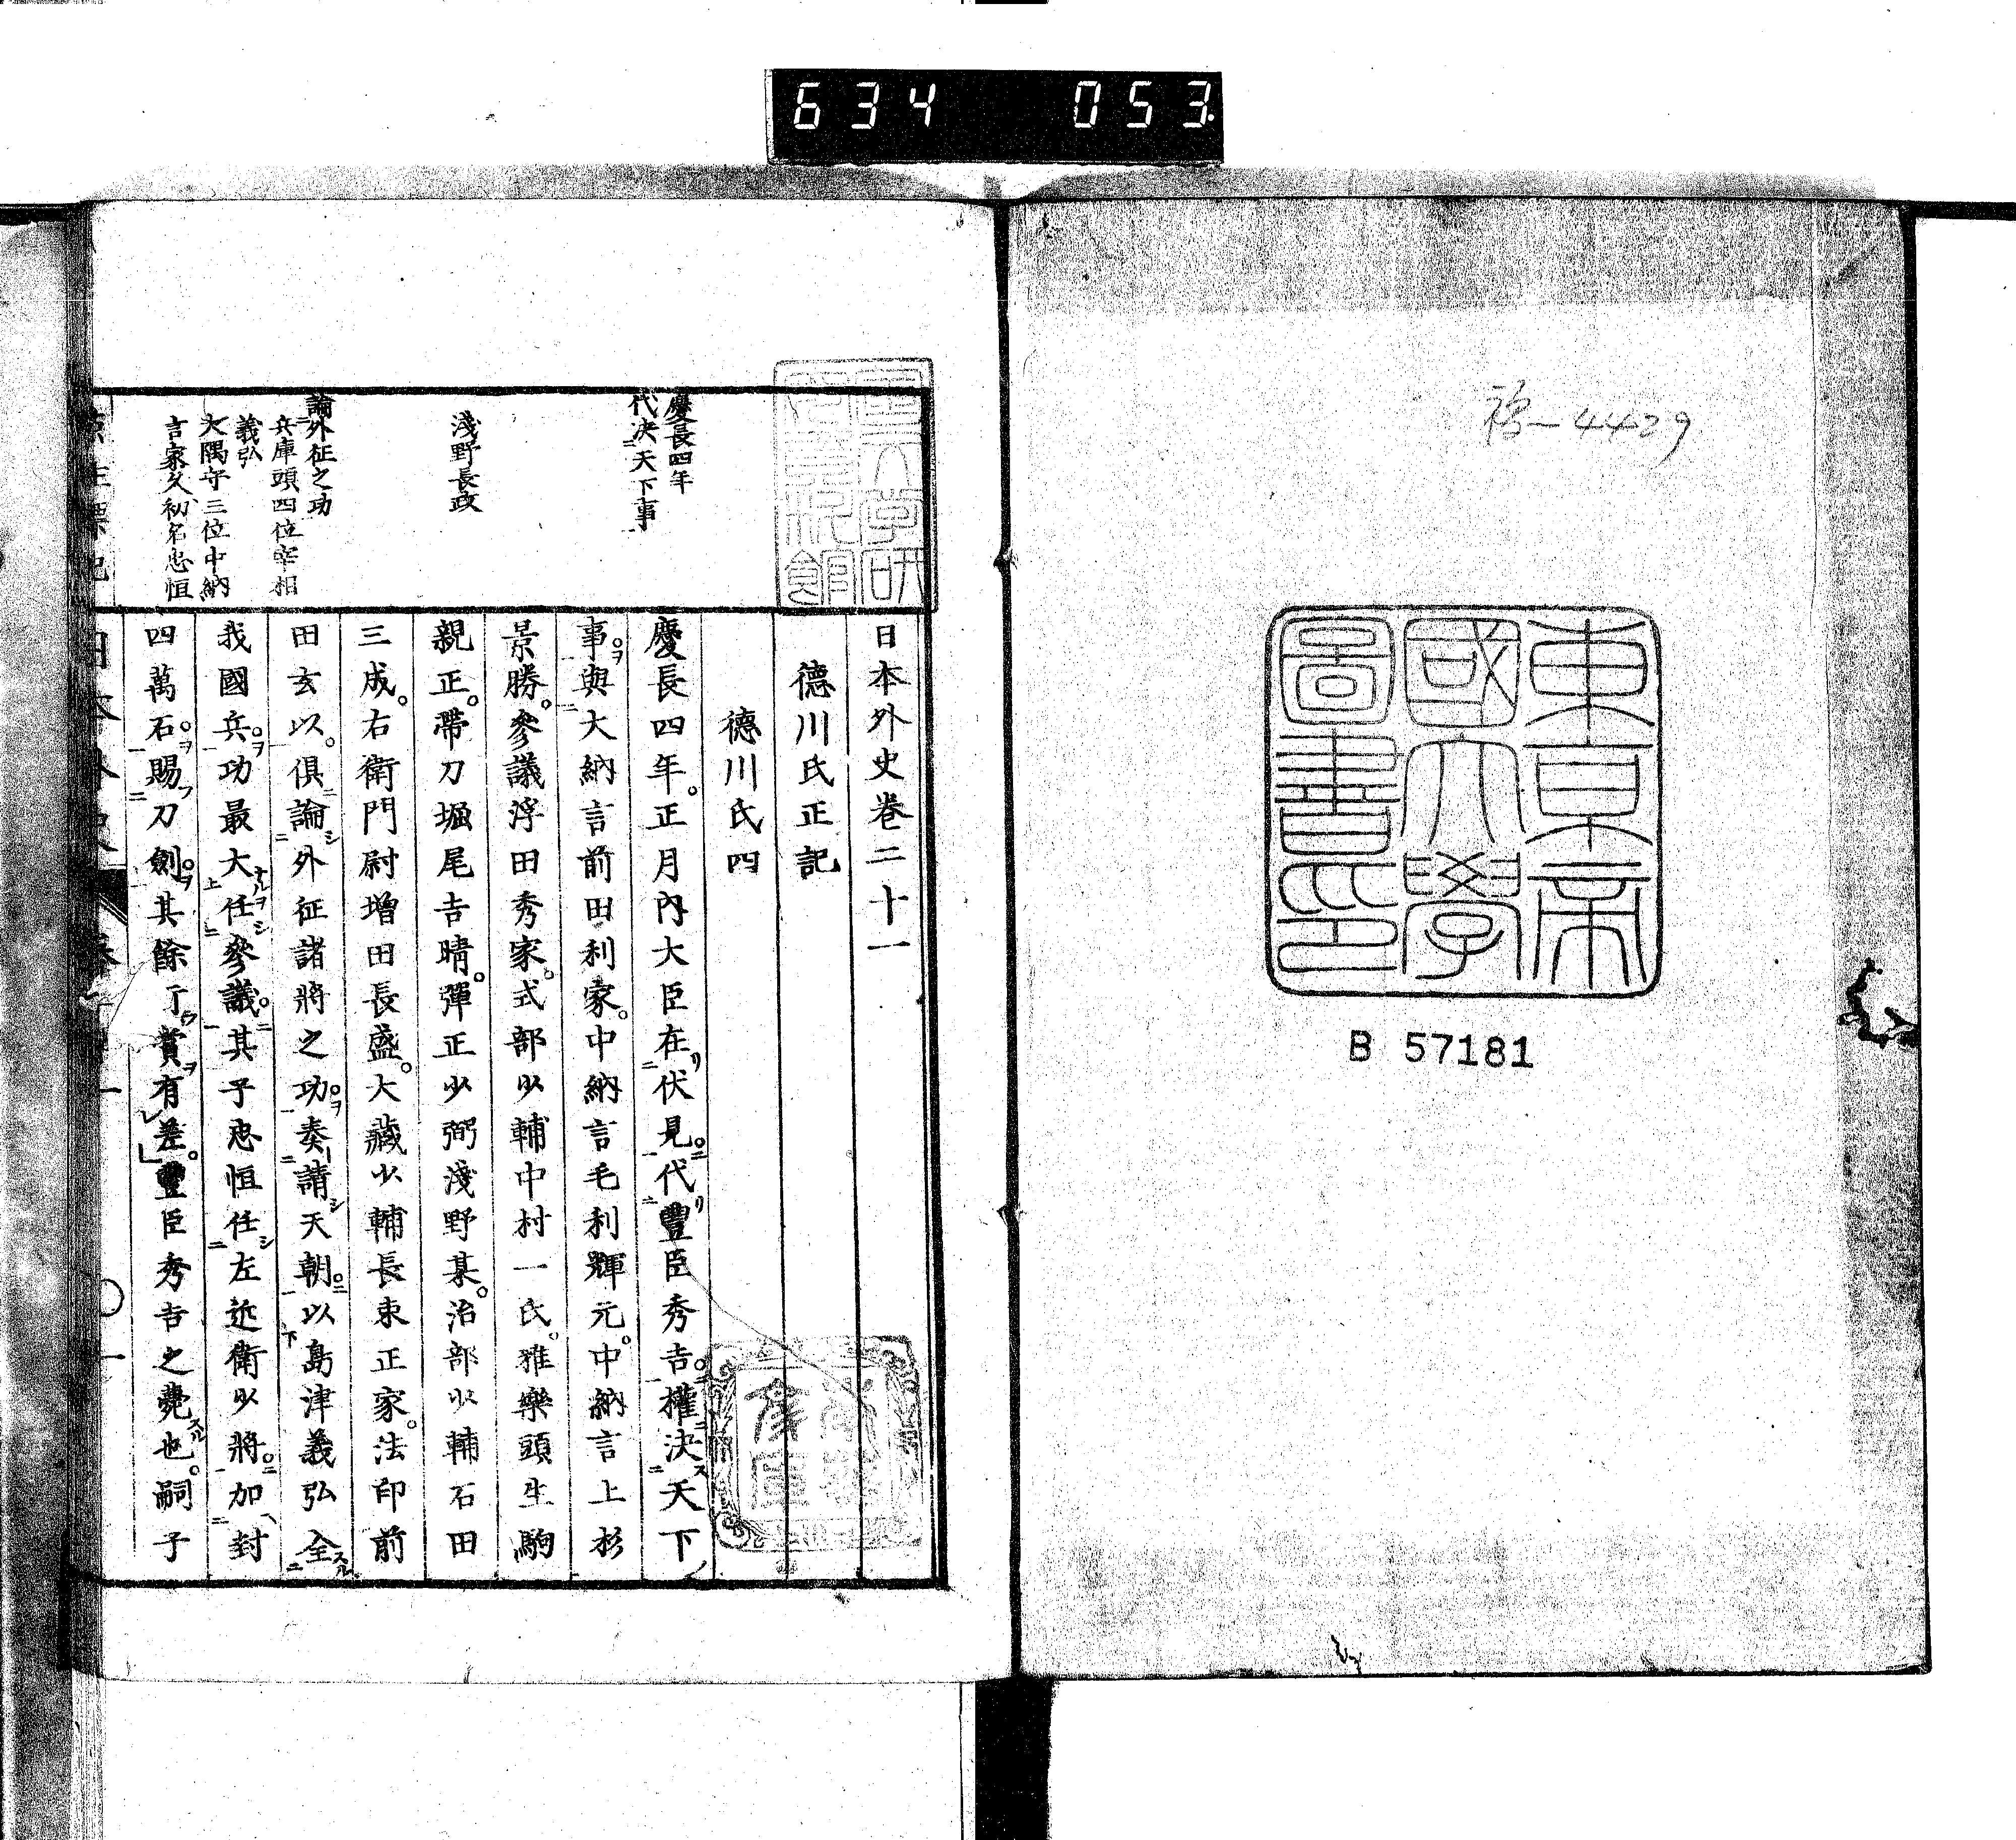 634 053
B 57181
東京帝
國大學
圖書印
日本外史卷二十一
德川氏正記
德川氏四
慶長四年。正月內大臣在伏見。代豐臣秀吉。權決天下
事。與大納言前田利家。中納言毛利輝元。中納言上杉
景勝。參議浮田秀家。式部少輔中村一氏。雅樂頭生駒
親正。帶刀堀尾吉晴。彈正少弼淺野某。治部少輔石田
三成。右衛門尉增田長盛。大藏少輔長束正家。法印前
田玄以。俱論外征諸將之功。奏請天朝。以島津義弘全
我國兵。功最大任參議。其子忠恒任左近衛少將。加封
四萬石。賜刀劍。其餘行賞有差。豐臣秀吉之薨也。嗣子
慶長四年
代決天下事
淺野長政
論外征之功
兵庫頭四位宰相
義弘
大隅守三位中納
言家久初名忠恒